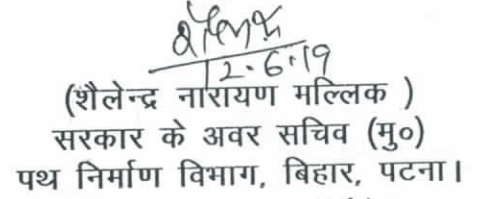 शैलेन्द्र
12.6.19
(शैलेन्द्र नारायण मल्लिक )
सरकार के अवर सचिव (मु०)
पथ निर्माण विभाग, बिहार, पटना।